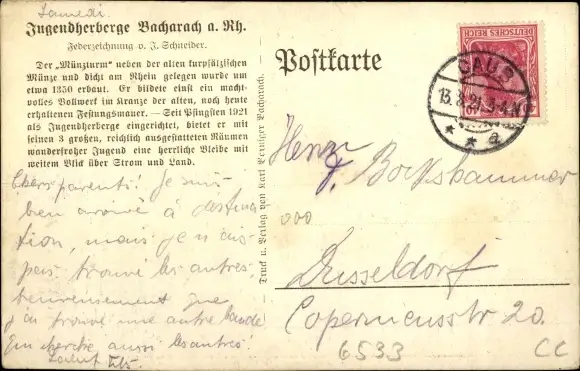 Samedi.
Jugendherberge Bacharach a. Rh.
Federzeichnung v. J. Schneider.
Der „Münzturm" neben der alten kurpfälzischen
Münze und dicht am Rhein gelegen wurde um
etwa 1350 erbaut. Er bildete einst ein macht-
volles Bollwerk im Kranze der alten, noch heute
erhaltenen Festungsmauer. — Seit Pfingsten 1921
als Jugendherberge eingerichtet, bietet er mit
seinen 3 großen, reichlich ausgestatteten Räumen
wanderfroher Jugend eine herrliche Bleibe mit
weitem Blick über Strom und Land.
Chers parents! Je suis
bien arrivé à destina-
tion, mais je n'ai
pas trouvé les autres
heureusement que
j'ai trouvé une autre bande
qui cherche aussi les autres!
Salut
Druck u. Verlag von Karl Bernitzer Bacharach.
Postkarte
DEUTSCHES REICH
CAUB
13.8.21. 3-4 N
* * a
Herrn
J. Bockshammer
000
Düsseldorf
Copernicusstr 20.
6533
CC